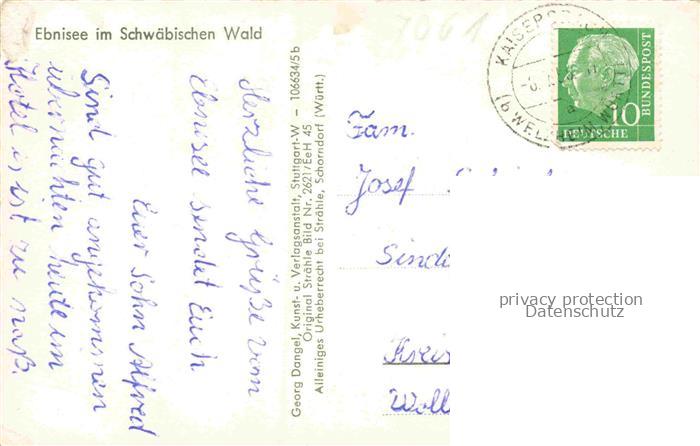 Ebnisee im Schwäbischen Wald
Herzliche Grüße vom
Ebnisee sendet Euch
Euer Sohn Alfred
Sind gut angekommen
übernachten heute im
Hotel es ist zu naß.
Georg Dangel, Kunst- u. Verlagsanstalt, Stuttgart-W – 106634/5 b
Original Strähle Bild Nr. 2621/EeH 45
Alleiniges Urheberrecht bei Strähle, Schorndorf (Württ.)
7061
10
DEUTSCHE
BUNDESPOST
Fam.
Josef
privacy protection
Datenschutz